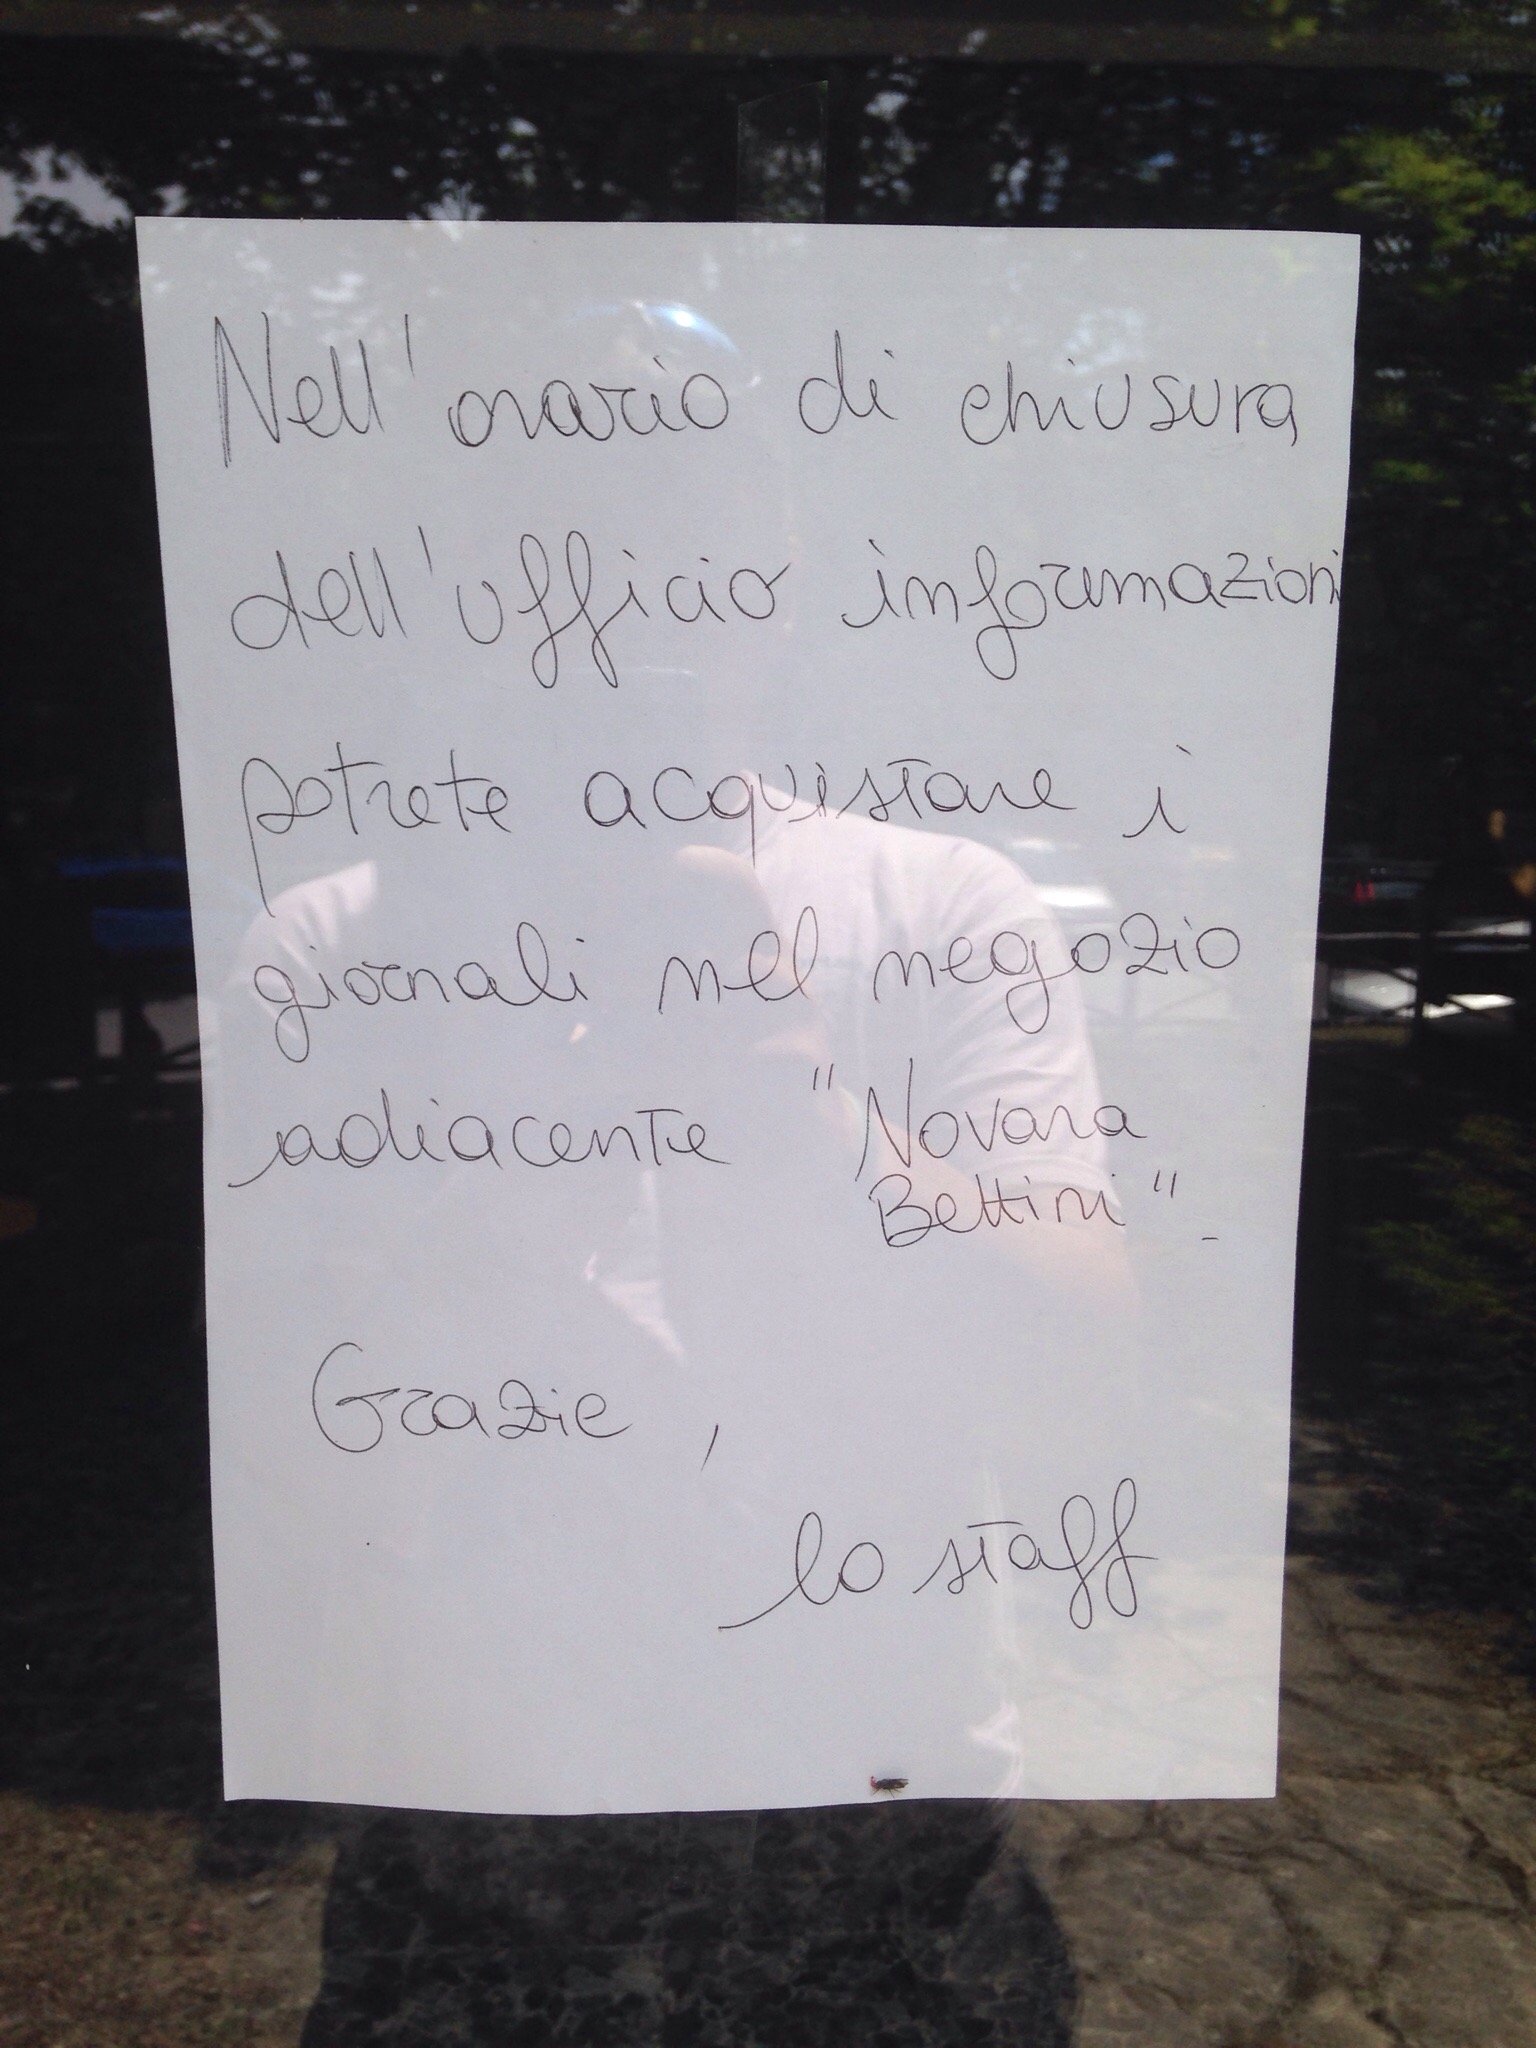 Nell'orario di chiusura
dell'ufficio informazioni
potrete acquistare i
giornali nel negozio
adiacente "Novara
Bettini".
Grazie,
lo staff